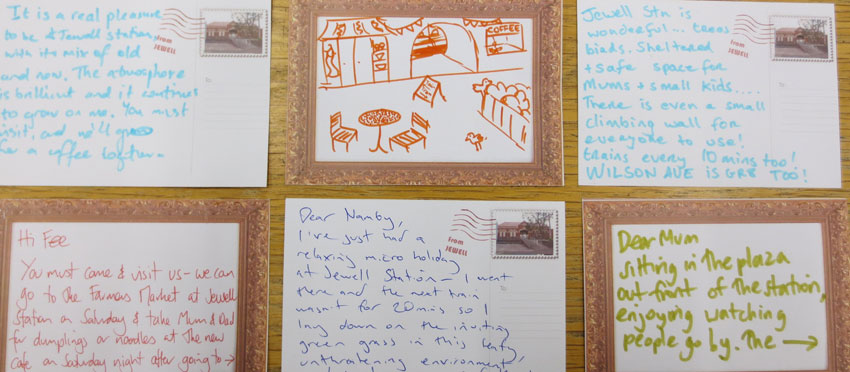 It is a real pleasure
to be at Jewell Station,
with its mix of old
and new. The atmosphere
is brilliant and it continues
to grow on me. You must
visit and we'll go
for a coffee together.
from
JEWELL
COFFEE
Jewell Stn is
wonderful... trees
birds. Sheltered
+ safe space for
Mums + small kids....
There is even a small
climbing wall for
everyone to use!
trains every 10 mins too!
WILSON AVE is GR8 TOO!
from
JEWELL
Hi Fee
You must come & visit us - we can
go to the Farmers Market at Jewell
Station on Saturday & take Mum & Dad
for dumplings or noodles at the new
cafe on Saturday night after going to →
Dear Namby,
I've just had a
relaxing micro holiday
at Jewell Station - I went
there and the next train
wasn't for 20mins so I
lay down on the inviting
green grass in this leafy,
unthreatening environment,
from
JEWELL
Dear Mum
sitting in the plaza
out front of the station,
enjoying watching
people go by. The →